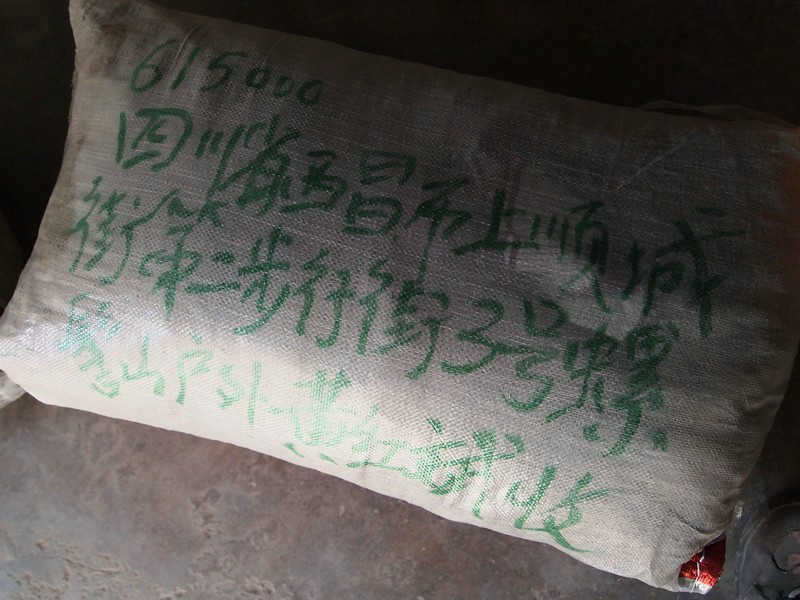 615000
四川省西昌市上顺城
街第二步行街3号螺
山户外 黄红 收